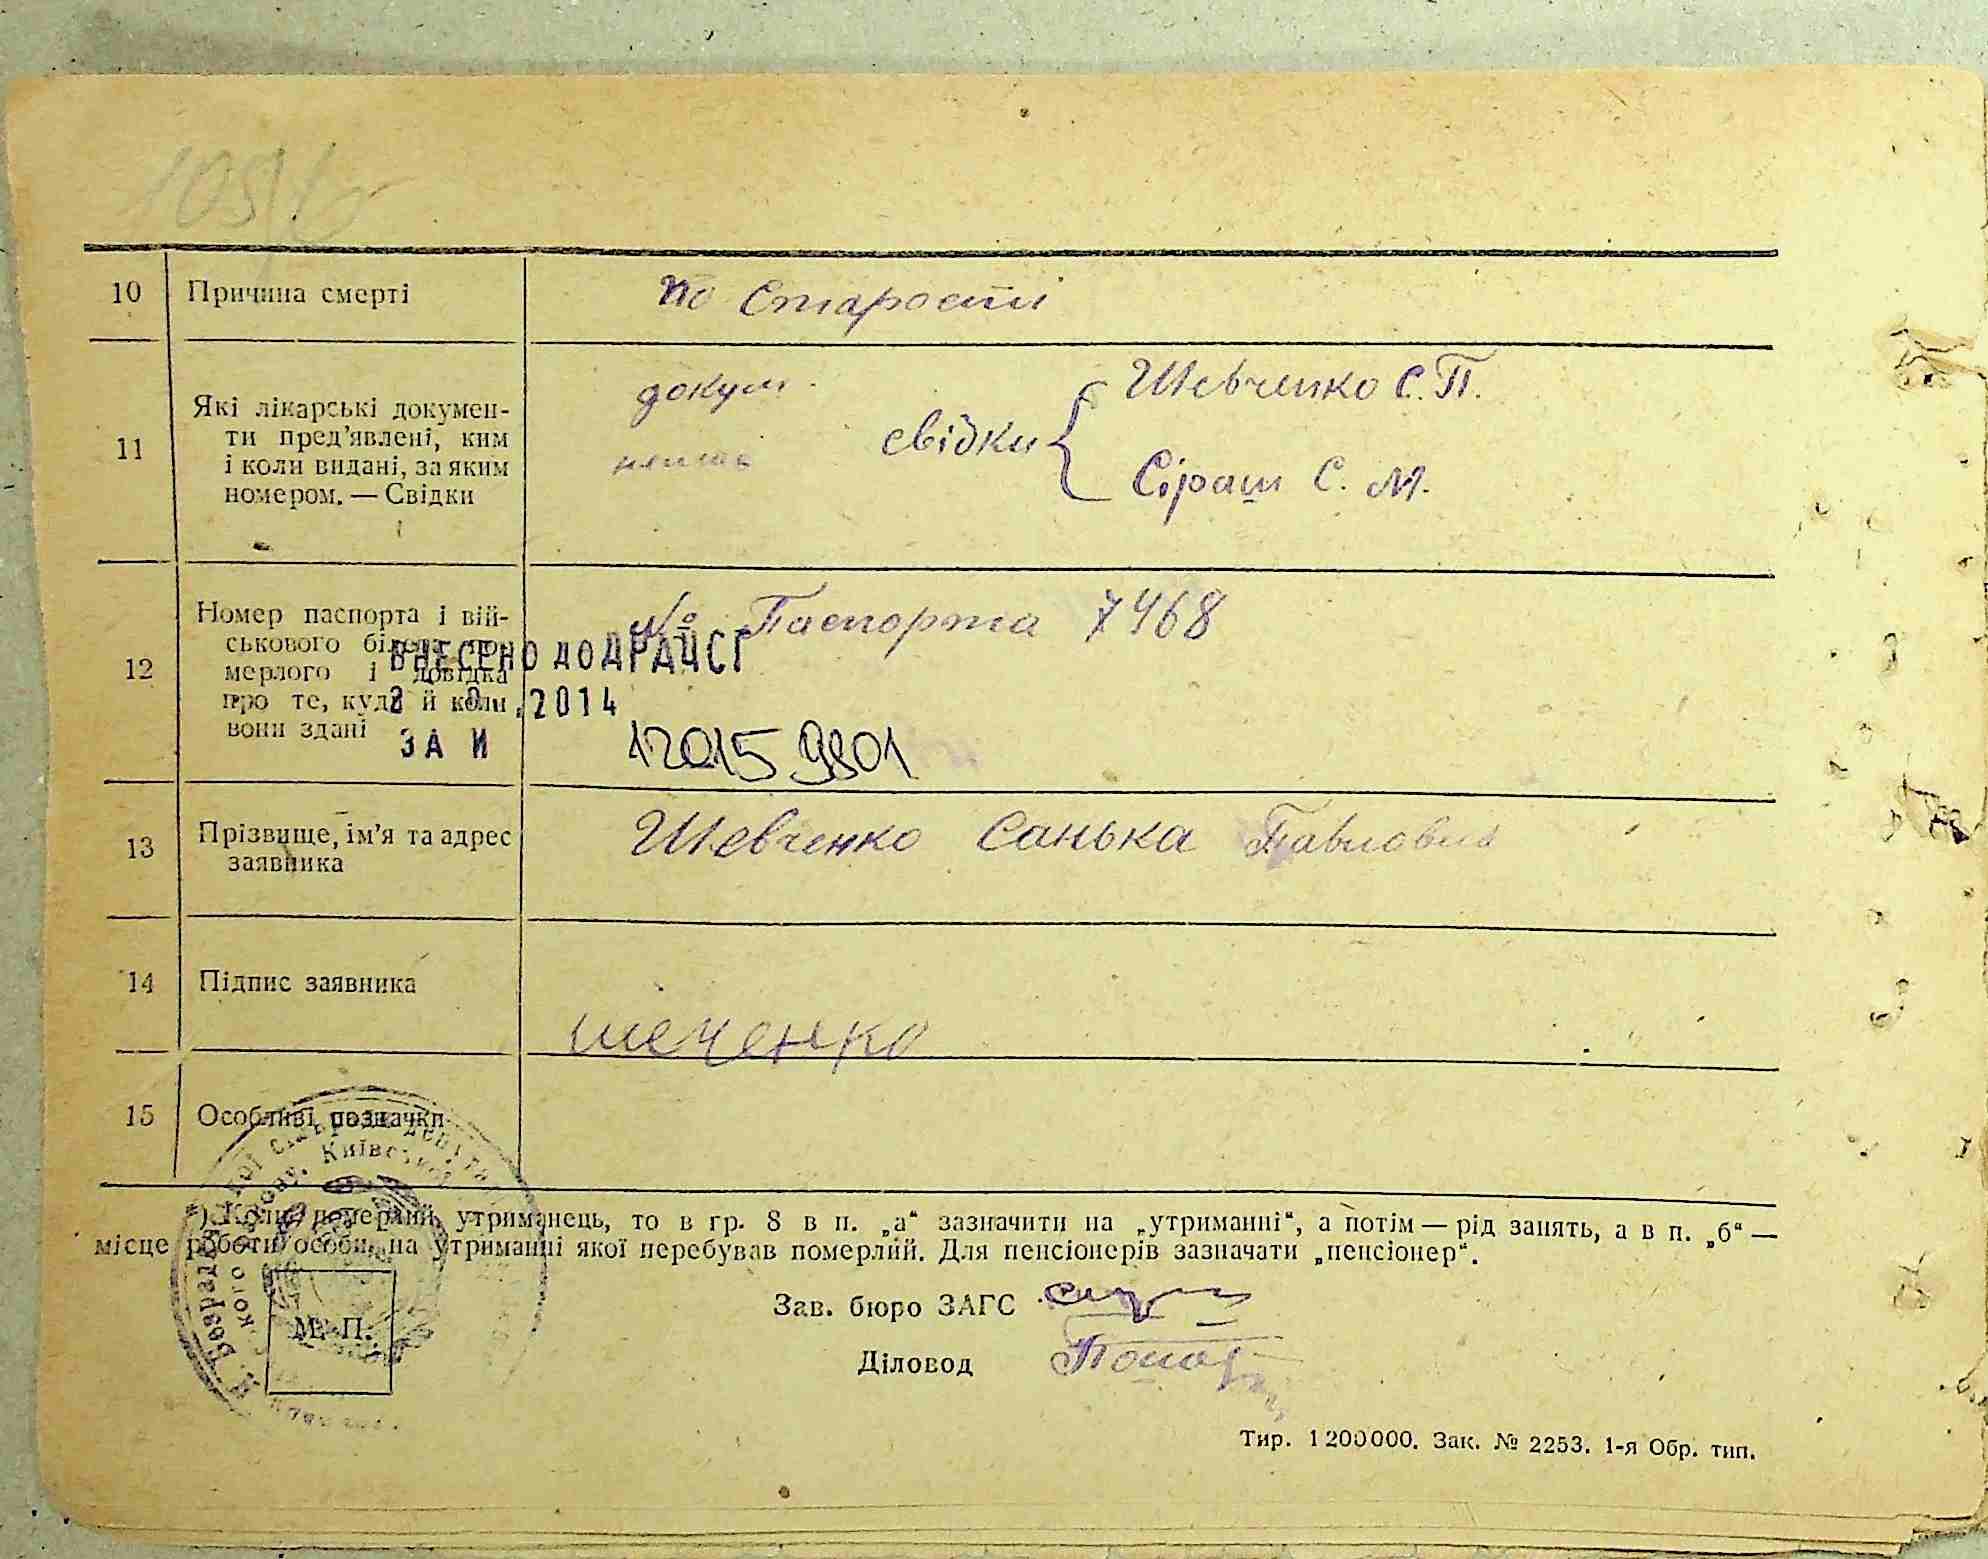 10 Причина смерті
по Старости
11 Які лікарські докумен-
ти пред'явлені, ким
і коли видані, за яким
номером. — Свідки
докум.
свідки
Шевченко С. П.
Сіраш С. М.
12 Номер паспорта і вій-
ськового білета по-
мерлого і довідка
про те, куди й коли
вони здані
№ Паспорта 7468
ВНЕСЕНО ДО ДРАЦСГ
2014
ЗА №
120159801
13 Прізвище, ім'я та адрес
заявника
Шевченко Санька Павловна
14 Підпис заявника
шеченко
15 Особливі позначки
Київської
) Коли померлий утриманець, то в гр. 8 в п. „а“ зазначити на „утриманні“, а потім — рід занять, а в п. „б“ —
місце роботи особи, на утриманні якої перебував померлий. Для пенсіонерів зазначати „пенсіонер“.
Зав. бюро ЗАГС
М. П.
Діловод
Тир. 1 200 000. Зак. № 2253. 1-я Обр. тип.